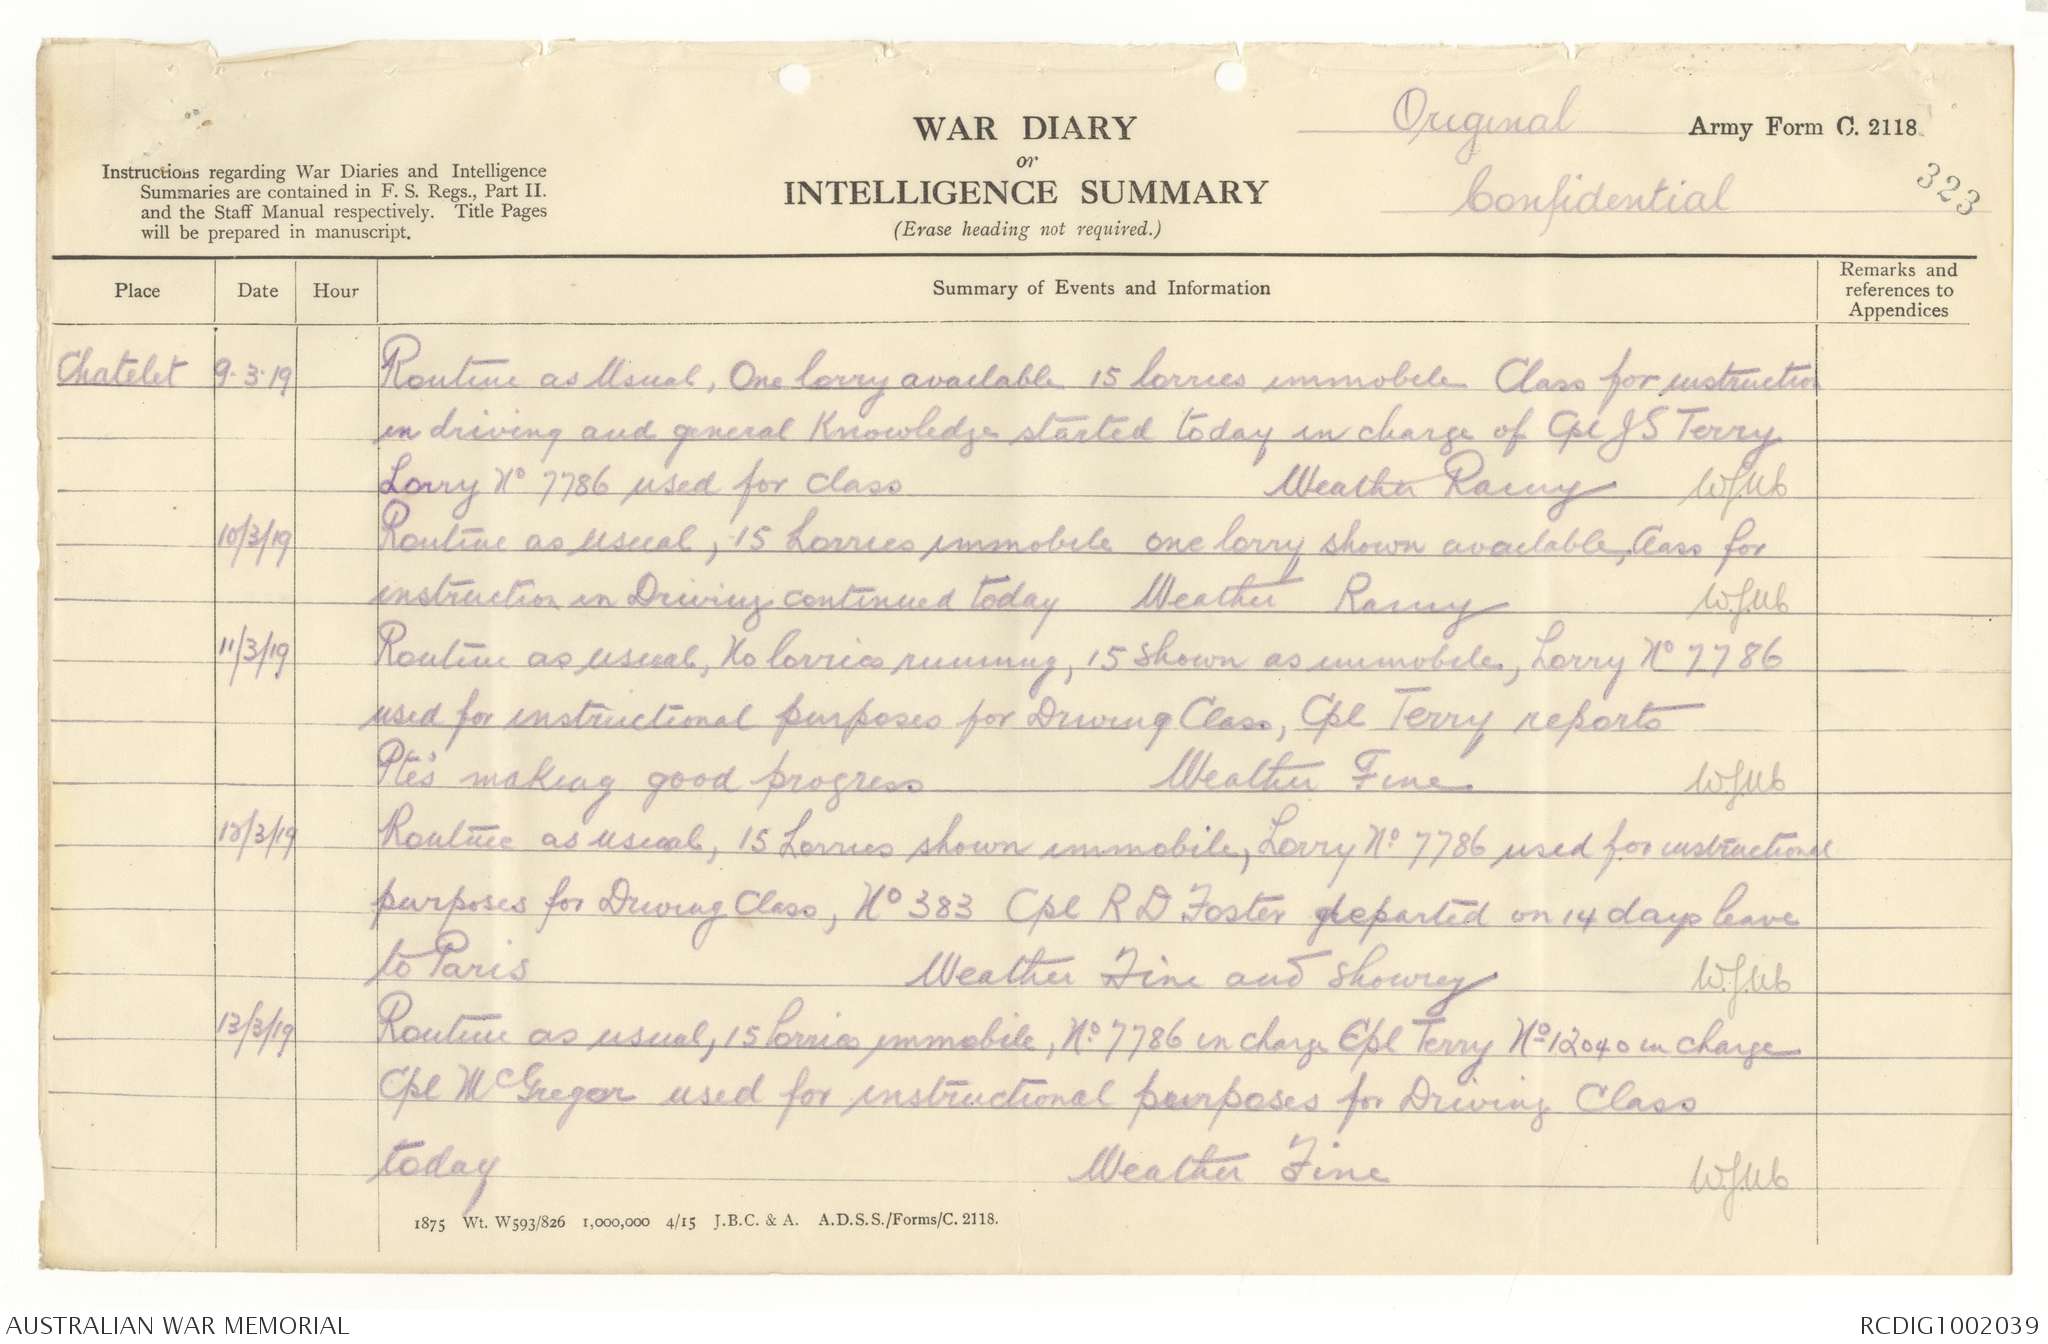 Original
Army Form C. 2118.
WAR DIARY
or
INTELLIGENCE SUMMARY
(Erase heading not required.)
Confidential
323
Instructions regarding War Diaries and Intelligence
Summaries are contained in F. S. Regs., Part II.
and the Staff Manual respectively. Title Pages
will be prepared in manuscript.
Place Date Hour Summary of Events and Information Remarks and references to Appendices
Chatelet 9.3.19 Routine as Usual, One lorry available 15 lorries immobile Class for instruction
in driving and general Knowledge started today in charge of Cpl J S Terry
Lorry No 7786 used for class Weather Rainy
10/3/19 Routine as usual, 15 Lorries immobile one lorry shown available, Class for
instruction in Driving continued today Weather Rainy
11/3/19 Routine as usual, No lorries running, 15 shown as immobile, Lorry No 7786
used for instructional purposes for Driving Class, Cpl Terry reports
Pte's making good progress Weather Fine
12/3/19 Routine as usual, 15 Lorries shown immobile, Lorry No. 7786 used for instructional
purposes for Driving Class, No 383 Cpl R D Foster departed on 14 days leave
to Paris Weather Fine and Showrey
13/3/19 Routine as usual, 15 lorries immobile, No. 7786 in charge Cpl Terry No 12040 in charge
Cpl McGregor used for instructional purposes for Driving Class
today Weather Fine
1875 Wt. W593/826 1,000,000 4/15 J.B.C. & A. A.D.S.S./Forms/C. 2118.
AUSTRALIAN WAR MEMORIAL
RCDIG1002039